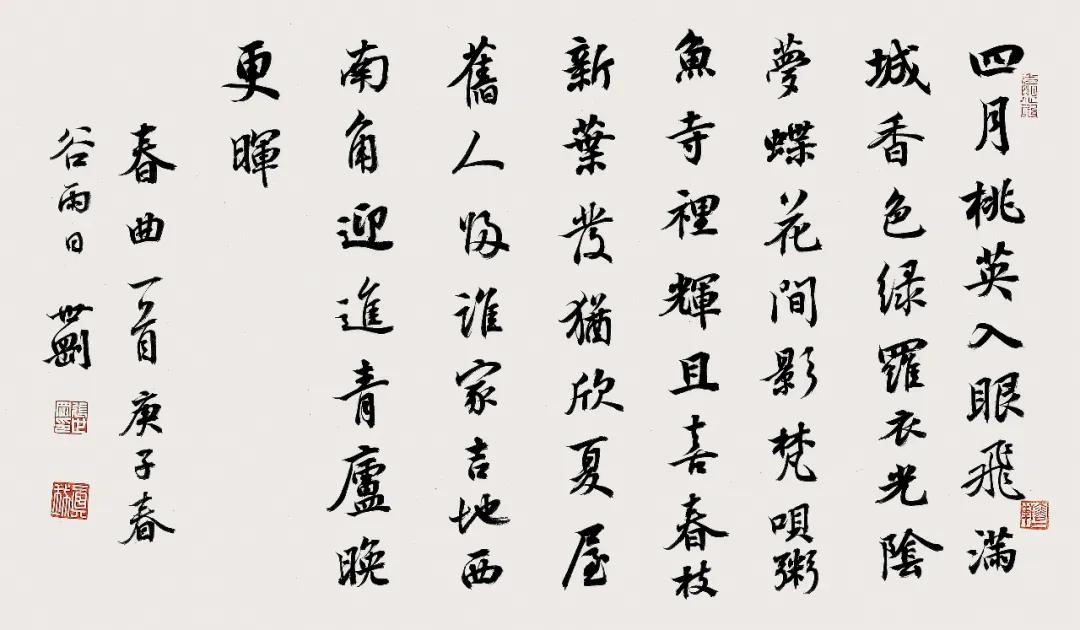 四月桃英入眼飛滿
城香色绿羅衣光陰
夢蝶花間影梵唄粥
魚寺裡輝且喜春枝
新葉發猶欣夏屋
舊人歸誰家吉地西
南角迎進青廬晚
更暉
春曲一首庚子春
谷雨日世剛